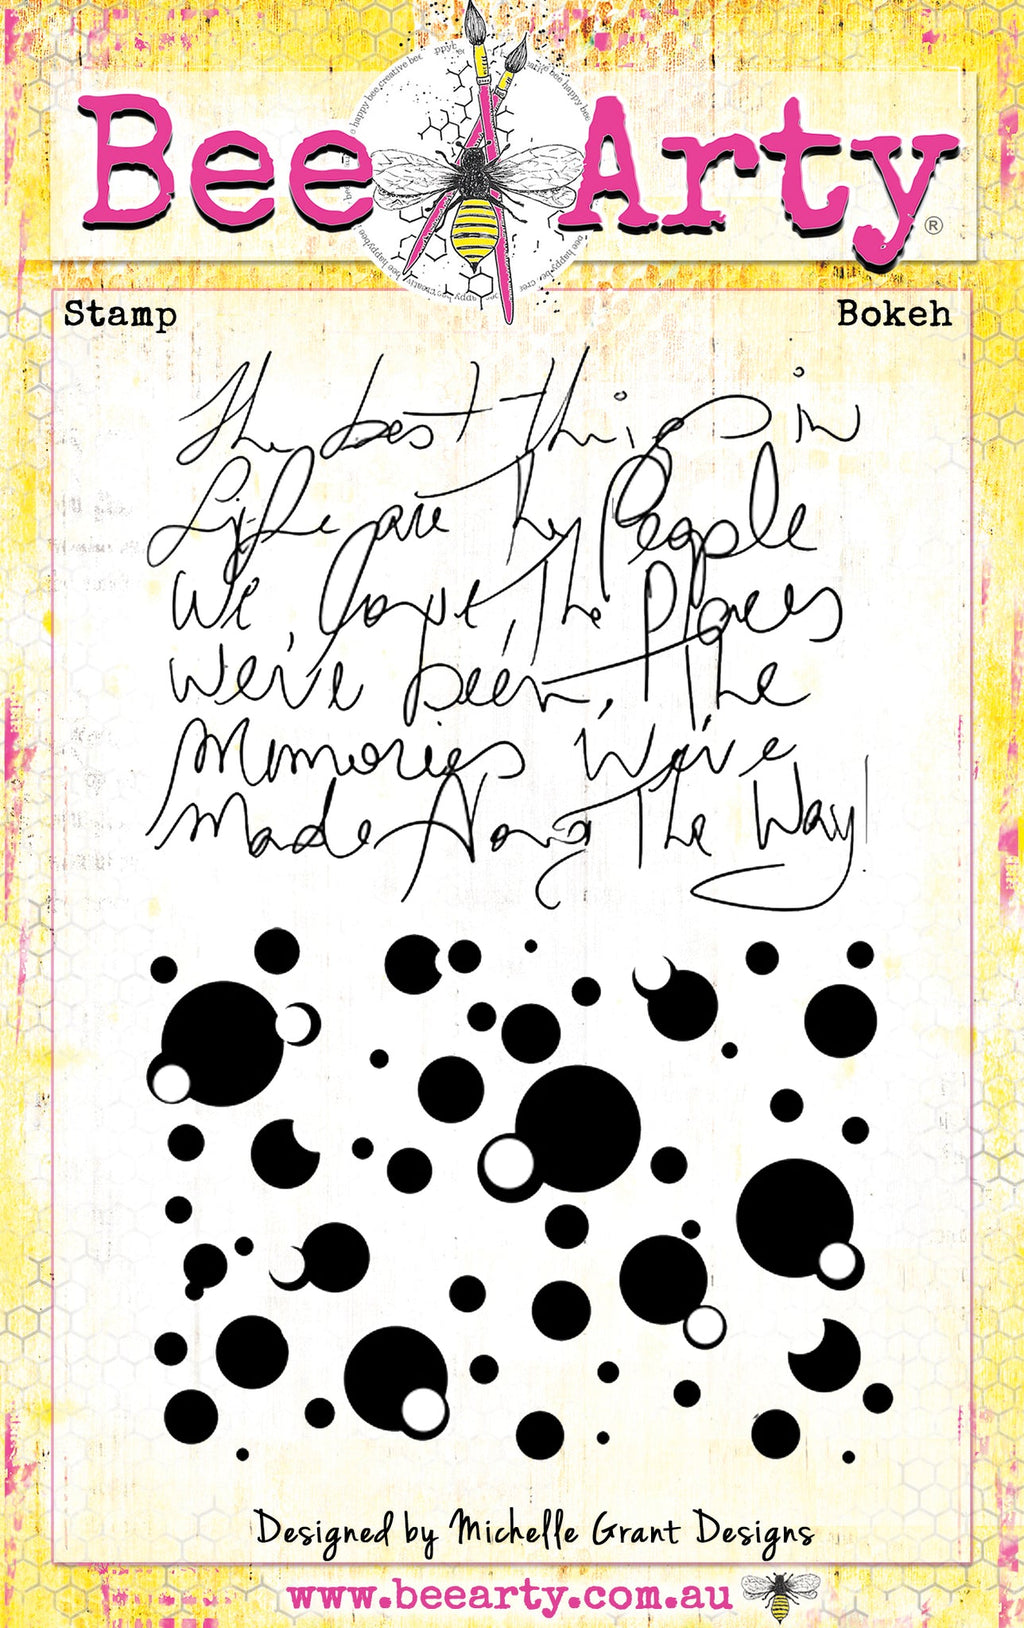 Bee Arty®
Stamp
Bokeh
The best things in
Life are the People
We Love, The Places
We've been, The
Memories We've
Made Along The Way!
Designed by Michelle Grant Designs
www.beearty.com.au